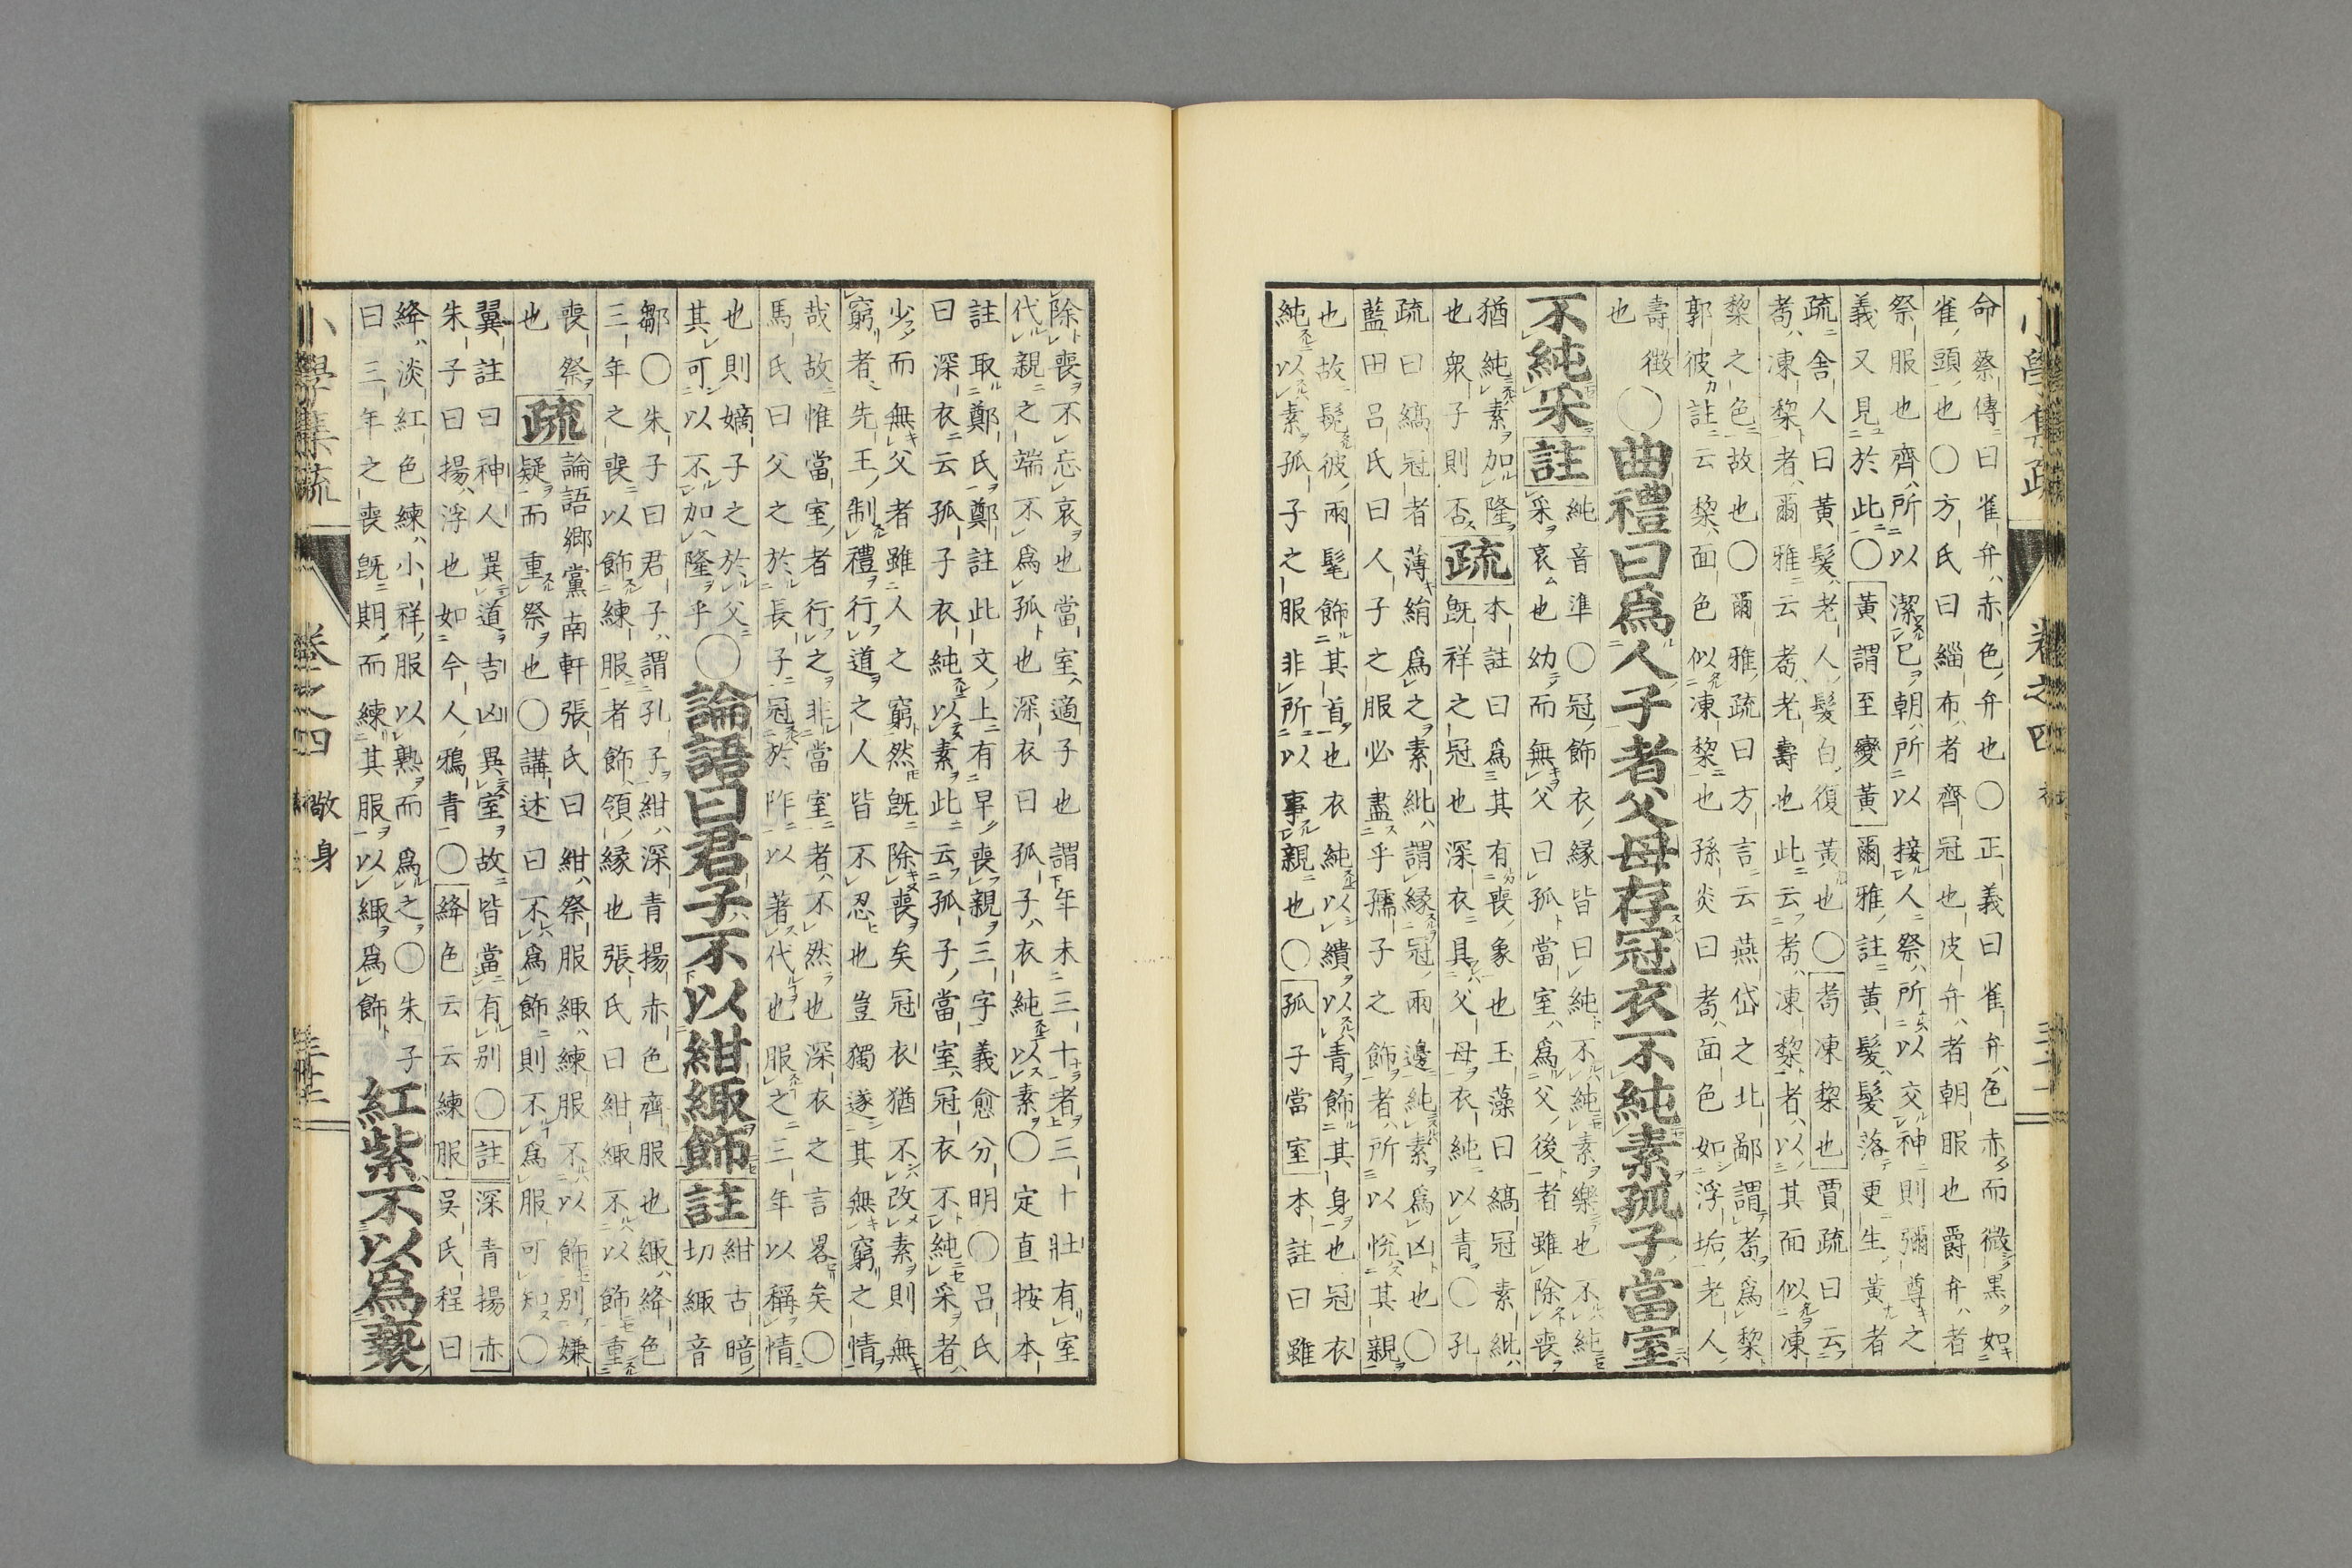 命蔡傳曰雀弁赤色弁也〇正義曰雀弁色赤而微黒如
雀頭也〇方氏曰緇布者齊冠也皮弁者朝服也爵弁者
祭服也齊所以潔已朝所以接人祭所以交神則彌尊之
義又見於此〇黃謂至變黃爾雅註黃髮髮落更生黃者
疏舎人曰黃髮老人髮白復黃也〇耇凍棃也賈疏曰云
耇凍棃者爾雅云耇老壽也此云耇凍棃者以其面似凍
棃之色故也〇爾雅疏曰方言云燕岱之北鄙謂耇爲棃
郭彼註云棃面色似凍棃也孫炎曰耇面色如浮垢老人
壽徴
也
〇曲禮曰爲人子者父母存冠衣不純素孤子當室
不純采註
純音準〇冠飾衣縁皆曰純不純素樂也不純
采哀也幼而無父曰孤當室爲父後者雖除喪
猶純素加隆
也衆子則否
疏
本註曰爲其有喪象也玉藻曰縞冠素紕
既祥之冠也深衣具父母衣純以青〇孔
疏曰縞冠者薄絹爲之素紕謂縁冠兩邊純素爲凶也〇
藍田呂氏曰人子之服必盡乎孺子之飾者所以悅其親
也故髧彼兩髦飾其首也衣純以繢以青飾其身也冠衣
純以素孤子之服非所以事親也〇孤子當室本註曰雖
小學集疏
卷之四
除喪不忘哀也當室適子也謂年未三十者三十壯有室
代親之端不爲孤也深衣曰孤子衣純以素〇定直按本
註取鄭氏鄭註此文上有早喪親三字義愈分明〇呂氏
曰深衣云孤子衣純以素此云孤子當室冠衣不純采者
少而無父者雖人之窮然既除喪矣冠衣猶不改素則無
窮者先王制禮行道之人皆不忍也豈獨遂其無窮之情
哉故惟當室者行之非當室者不然也深衣之言畧矣〇
馬氏曰父之於長子冠於阼以著代也服之三年以稱情
也則嫡子之於父
其可以不加隆乎
〇論語曰君子不以紺緅飾註
紺古暗
切緅音
鄒〇朱子曰君子謂孔子紺深青揚赤色齊服也緅絳色
三年之喪以飾練服者飾領縁也張氏曰紺緅不以飾重
喪祭
也
疏
論語鄉黨南軒張氏曰紺祭服緅練服不以飾別嫌
疑而重祭也〇講述曰不爲飾則不爲服可知〇
翼註曰神人異道吉凶異室故皆當有別〇註深青揚赤
朱子曰揚浮也如今人鴉青〇絳色云云練服吳氏程曰
絳淡紅色練小祥服以熟而爲之〇朱子
曰三年之喪既期而練其服以緅爲飾
紅紫不以爲褻
小學集疏
卷之四
敬身